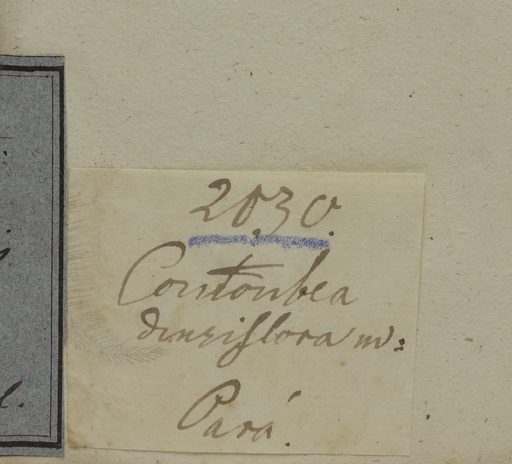 2030.
Coutoubea
densiflora m:
Pará.